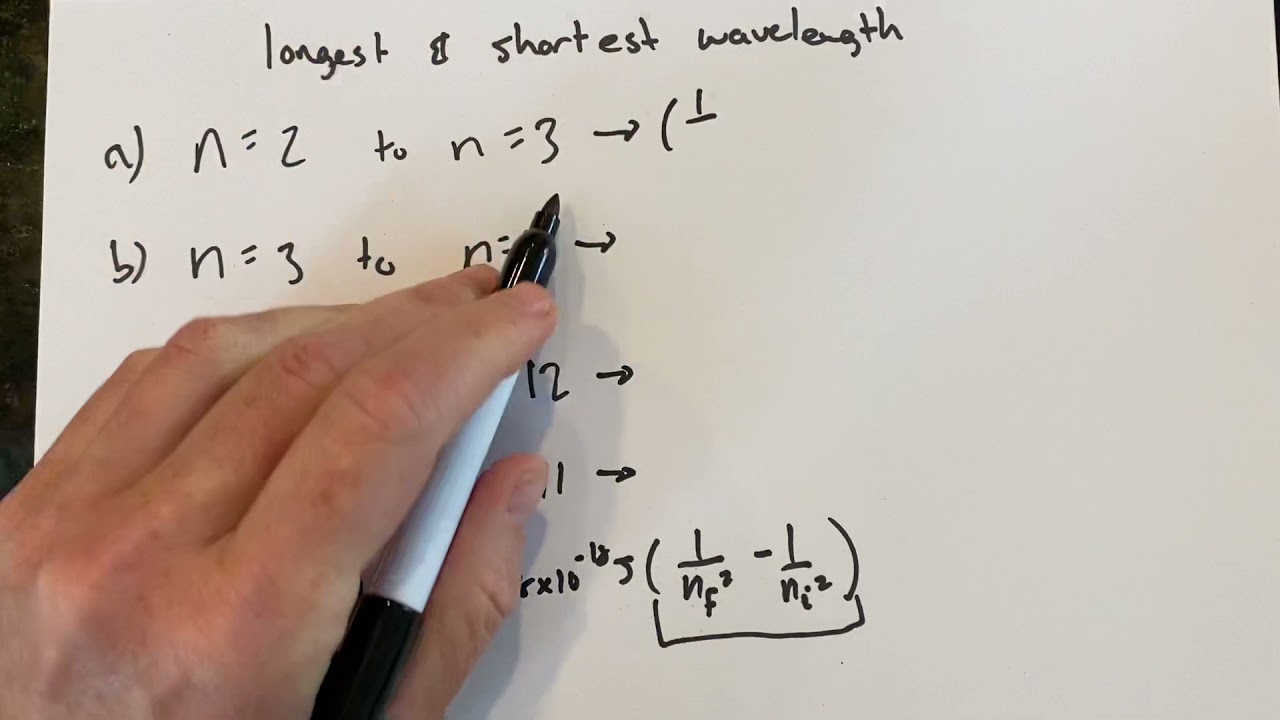 longest & shortest wavelength
a) n = 2 to n = 3 → ( 1
b) n = 3 to n = →
12 →
11 →
x10⁻¹⁸ J ( 1/n_f² - 1/n_i² )